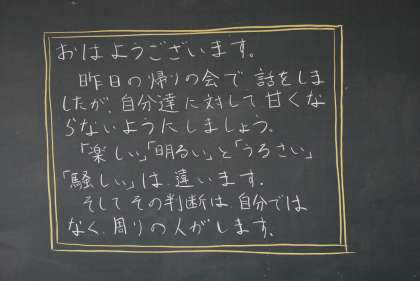 おはようございます。
昨日の帰りの会で話をしま
したが、自分達に対して甘くな
らないようにしましょう。
「楽しい」「明るい」と「うるさい」
「騒しい」は違います。
そしてその判断は自分では
なく、周りの人がします。